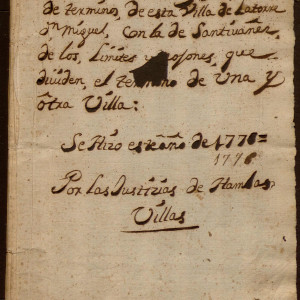 de termino, de esta Villa de Latorre
Dn Miguel, con la de Santivañes,
de los, Limites y mojones, que
dividen, el termino de Una y
ôtra Villa:
Se Hizo este año de 1776=
1776
Por las Justizias de Hambas
Villas